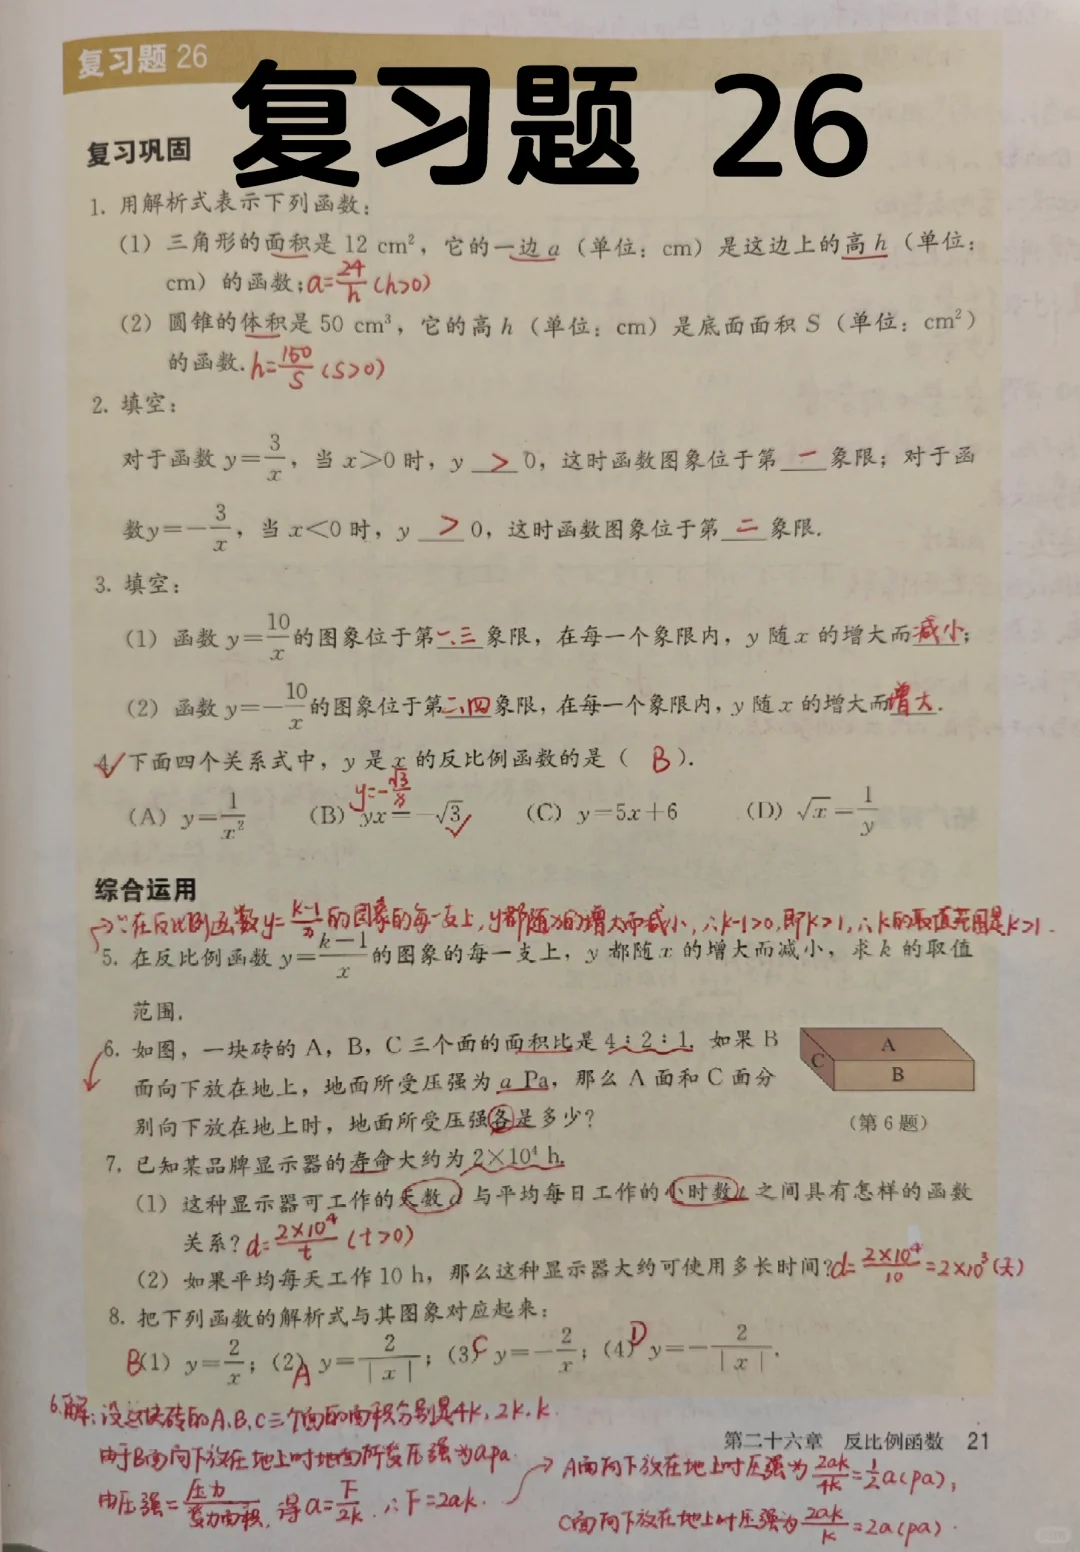 复习题 26
复习题 26
复习巩固
1. 用解析式表示下列函数：
(1) 三角形的面积是 12 cm²，它的一边 a（单位：cm）是这边上的高 h（单位：
cm）的函数；a=24/h (h>0)
(2) 圆锥的体积是 50 cm³，它的高 h（单位：cm）是底面面积 S（单位：cm²）
的函数. h=150/S (S>0)
2. 填空：
对于函数 y=3/x，当 x>0 时，y > 0，这时函数图象位于第 一 象限；对于函
数y=-3/x，当 x<0 时，y > 0，这时函数图象位于第 二 象限.
3. 填空：
(1) 函数 y=10/x 的图象位于第一、三象限，在每一个象限内，y 随 x 的增大而减小；
(2) 函数 y=-10/x 的图象位于第二、四象限，在每一个象限内，y 随 x 的增大而增大.
4. 下面四个关系式中，y 是 x 的反比例函数的是（ B ）.
y=-√3/x
(A) y=1/x² (B) yx=-√3 (C) y=5x+6 (D) √x=1/y
综合运用
∵在反比例函数y=k-1/x的图象的每一支上，y都随x的增大而减小，∴k-1>0，即k>1，∴k的取值范围是k>1.
5. 在反比例函数 y=k-1/x 的图象的每一支上，y 都随 x 的增大而减小，求 k 的取值
范围.
6. 如图，一块砖的 A，B，C 三个面的面积比是 4：2：1. 如果 B
面向下放在地上，地面所受压强为 a Pa，那么 A 面和 C 面分
别向下放在地上时，地面所受压强各是多少？
A
C
B
（第 6 题）
7. 已知某品牌显示器的寿命大约为 2×10⁴ h.
(1) 这种显示器可工作的天数 d 与平均每日工作的小时数 t 之间具有怎样的函数
关系？d=2×10⁴/t (t>0)
(2) 如果平均每天工作 10 h，那么这种显示器大约可使用多长时间？d=2×10⁴/10=2×10³(天)
8. 把下列函数的解析式与其图象对应起来：
B(1) y=2/x；(2)A y=2/|x|；(3)C y=-2/x；(4)D y=-2/|x|.
6.解：设这块砖的A、B、C三个面的面积分别是4k，2k，k.
由于B面向下放在地上时地面所受压强为apa.
由压强=压力/受力面积，得a=F/2k.∴F=2ak.
第二十六章 反比例函数 21
A面向下放在地上时压强为2ak/4k=1/2a(pa)，
C面向下放在地上时压强为2ak/k=2a(pa).